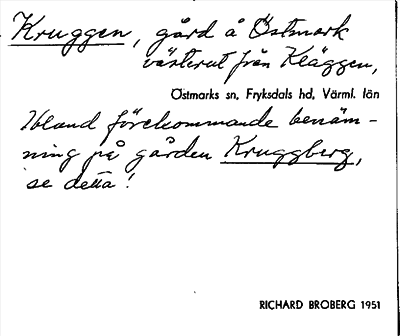 Kruggen, gård å Östmark
västerut från Kläggen,
Östmarks sn, Fryksdals hd, Värml. län
Ibland förekommande benäm-
ning på gården Kruggberg,
se detta!
RICHARD BROBERG 1951